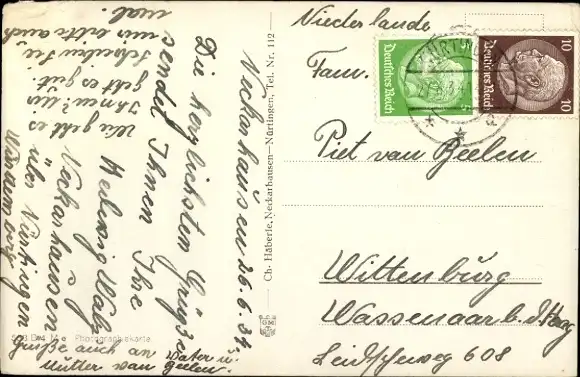 Neckarhausen 26.6.34
Die herzlichsten Grüße
sendet Ihnen Ihre
Hedwig Walz
Neckarhausen
über Nürtingen
Wie geht es
Ihnen? Mir
geht es gut.
Schreiben Sie
mir bitte auch
mal.
Grüße auch an Vater u.
Mutter van Beelen.
Photographiekarte
Ch. Häberle, Neckarhausen-Nürtingen, Tel. Nr. 112
Niederlande
Fam.
Piet van Beelen
Wittenburg
Wassenaar b. d. Haag
Leidscheweg 608
Deutsches Reich
5
Deutsches Reich
10
10